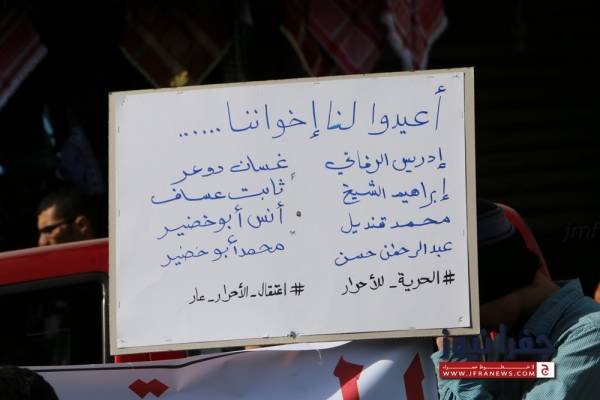 أعيدوا لنا إخواننا......
إدريس الرفاتي
إبراهيم الشيخ
محمد قنديل
عبدالرحمن حسن
#الحرية_للأحرار
غسان دوعر
ثابت عساف
أنس أبوخضير
محمد أبوخضير
#اعتقال_الأحرار_عار
جفرا نيوز
WWW.JFRANEWS.COM